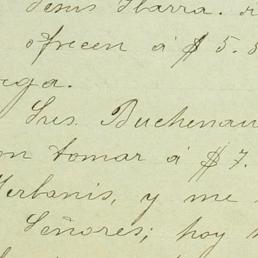 Jesus Ibarra. r
ofrecen á $ 5.5
ega.
Sres. Buchenau
on tomar á $ 7.
Herbanis, y me
Señores; hoy